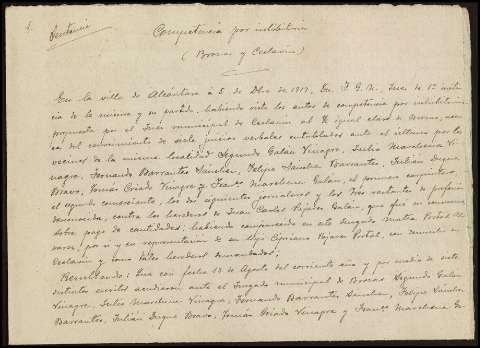 Sentencia
Competencia por inhibitoria
(Brozas y Ceclavín)
En la villa de Alcántara á 5 de Dbre de 1917, Sr. F. G. Juez de 1ª instan
cia de la misma y su partido, habiendo visto los autos de competencia por inhibitoria
propuesta por el Juez municipal de Ceclavín al de igual clase de Brozas, acer
ca del conocimiento de siete juicios verbales entablados ante el último por los
vecinos de la misma localidad Segundo Galán Vinagre, Julio Marchena Vi
nagre, Fernando Barrantes Sánchez, Felipe Sánchez Barrantes, Julián Duque
Bravo, Tomás Criado Vinagre y Franco Marchena Galán, el primero carpintero,
el segundo comerciante, los dos siguientes jornaleros y los tres restantes de profesión
desconocida, contra los herederos de Juan Carlos Pajares Galán, que fué en comun,
sobre pago de cantidades; habiendo comparecido en este Juzgado
por si y en representación de su hijo Cipriano Pajares Portal, con domicilio en
Ceclavín y como tales herederos demandados;
Resultando: Que con fecha 13 de Agosto del corriente año y por medio de siete
distintos escritos acudieron ante el Juzgado municipal de Brozas Segundo Galán
Vinagre, Julio Marchena Vinagre, Fernando Barrantes Sánchez, Felipe Sánchez
Barrantes, Julián Duque Bravo, Tomás Criado Vinagre y Franco Marchena Ga